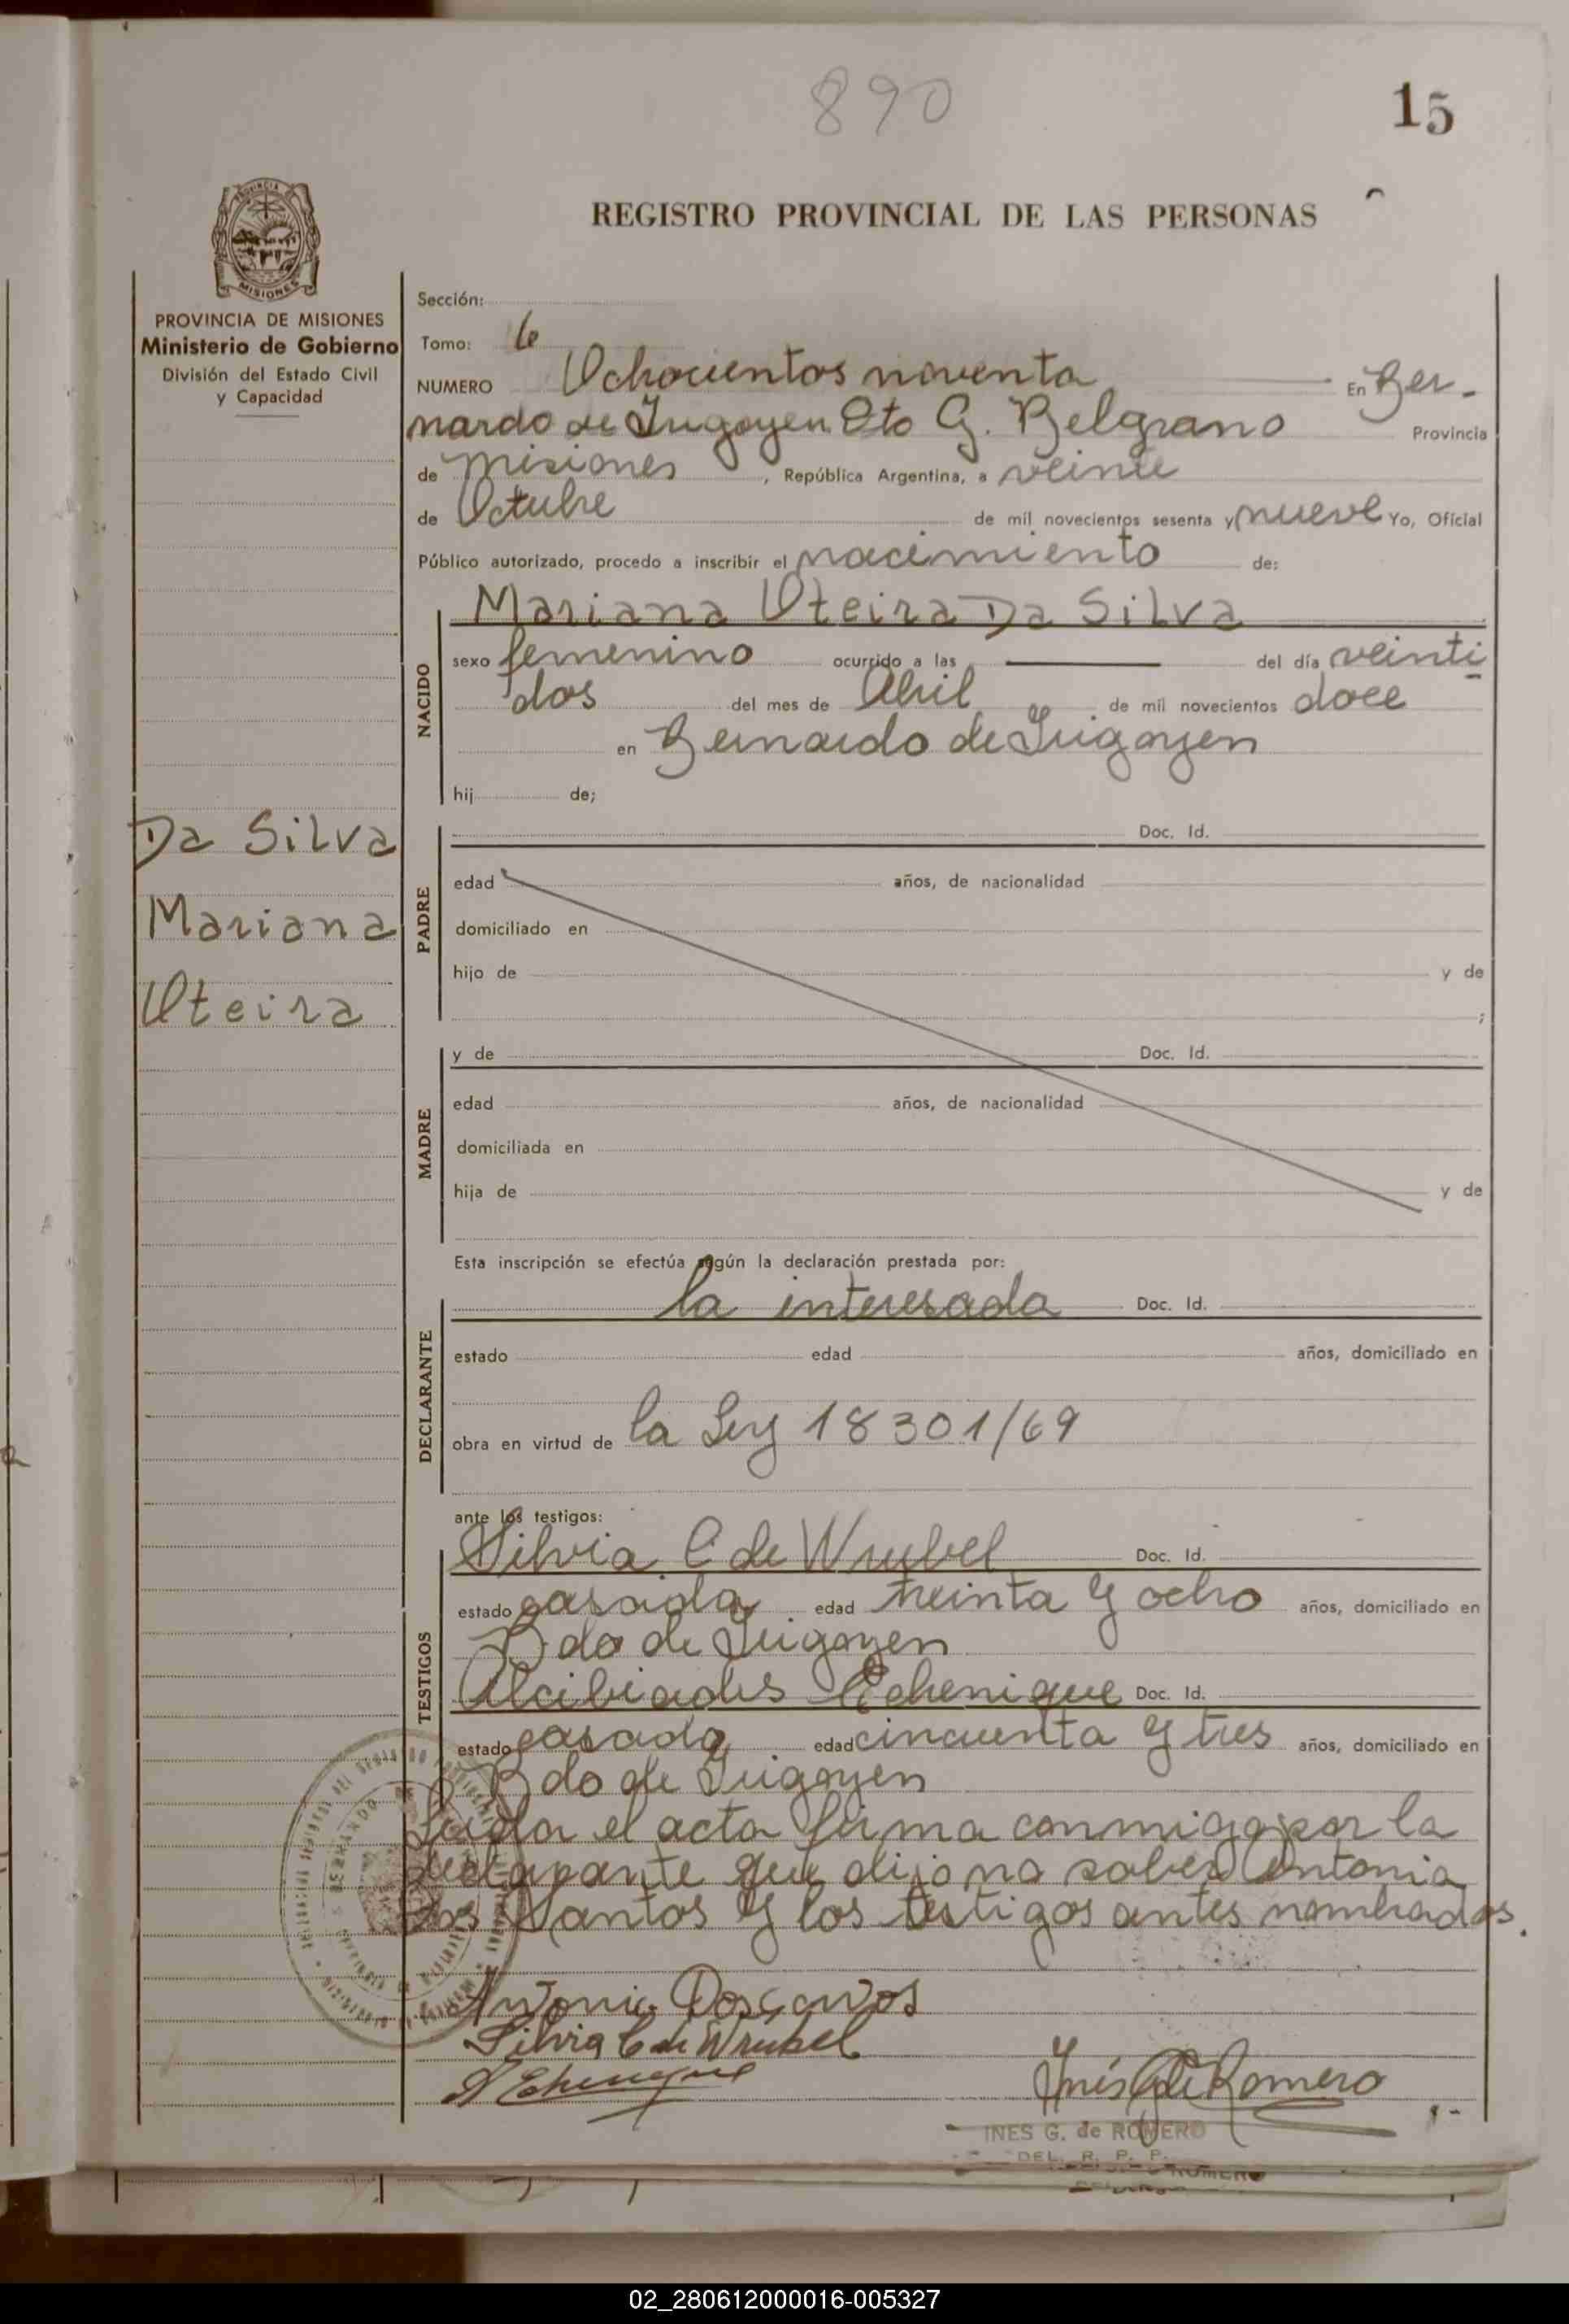 890
15
REGISTRO PROVINCIAL DE LAS PERSONAS
PROVINCIA
MISIONES
PROVINCIA DE MISIONES
Ministerio de Gobierno
División del Estado Civil
y Capacidad
Sección:
Tomo: 6
NUMERO Ochocientos noventa En Ber-
nardo de Irigoyen Dto G. Belgrano Provincia
de Misiones, República Argentina, a veinte
de Octubre de mil novecientos sesenta y nueve Yo, Oficial
Público autorizado, procedo a inscribir el nacimiento de:
Mariana Oteira Da Silva
NACIDO
sexo femenino ocurrido a las del día veinti
dos del mes de Abril de mil novecientos doce
en Bernardo de Irigoyen
hij de;
Da Silva
Mariana
Oteira
PADRE
Doc. Id.
edad años, de nacionalidad
domiciliado en
hijo de y de
;
MADRE
y de Doc. Id.
edad años, de nacionalidad
domiciliada en
hija de y de
Esta inscripción se efectúa según la declaración prestada por:
DECLARANTE
la interesada Doc. Id.
estado edad años, domiciliado en
obra en virtud de la Ley 18301/69
ante los testigos:
TESTIGOS
Silvia C de Wrubel Doc. Id.
estado casada edad treinta y ocho años, domiciliado en
Bdo de Irigoyen
Alcibiades Echenique Doc. Id.
estado casado edad cincuenta y tres años, domiciliado en
Bdo de Irigoyen
Leida el acta firma conmigo por la
declarante que dijo no saber Antonia
Dos Santos y los testigos antes nombrados.
Silvia C de Wrubel
A Echenique
Inés G de Romero
INES G. de ROMERO
DEL. R. P. P.
02_280612000016-005327